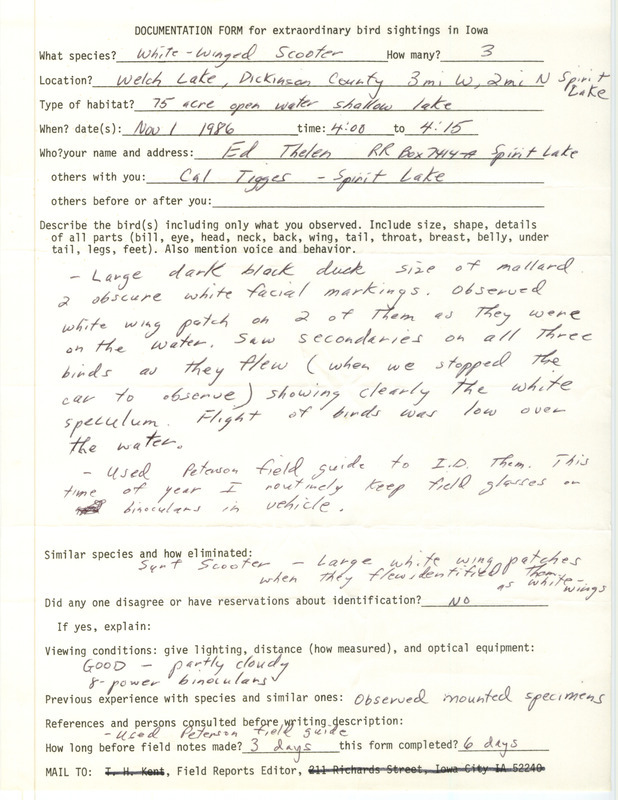 DOCUMENTATION FORM for extraordinary bird sightings in Iowa
What species? White-Winged Scooter How many? 3
Location? Welch Lake, Dickinson County 3mi W, 2mi N Spirit Lake
Type of habitat? 75 acre open water shallow lake
When? date(s): Nov 1 1986 time: 4:00 to 4:15
Who?your name and address: Ed Thelen RR Box 7414-A Spirit Lake
others with you: Cal Tigges - Spirit Lake
others before or after you:
Describe the bird(s) including only what you observed. Include size, shape, details
of all parts (bill, eye, head, neck, back, wing, tail, throat, breast, belly, under
tail, legs, feet). Also mention voice and behavior.
- Large dark black duck size of mallard.
2 obscure white facial markings. Observed
white wing patch on 2 of Them as They were
on the water. Saw secondaries on all Three
birds as they flew (when we stopped The
car to observe) showing clearly the white
speculum. Flight of birds was low over
the water.
- Used Peterson field guide to I.D. Them. This
time of year I routinely keep field glasses or
binoculars in vehicle.
Similar species and how eliminated:
Surf Scooter - Large white wing patches
when they flew identified Them
as white-wings
Did any one disagree or have reservations about identification? NO
If yes, explain:
Viewing conditions: give lighting, distance (how measured), and optical equipment:
GOOD - partly cloudy
8-power binoculars
Previous experience with species and similar ones: Observed mounted specimens
References and persons consulted before writing description:
- Used Peterson field guide
How long before field notes made? 3 days this form completed? 6 days
MAIL TO: T. H. Kent, Field Reports Editor, 211 Richards Street, Iowa City IA 52240